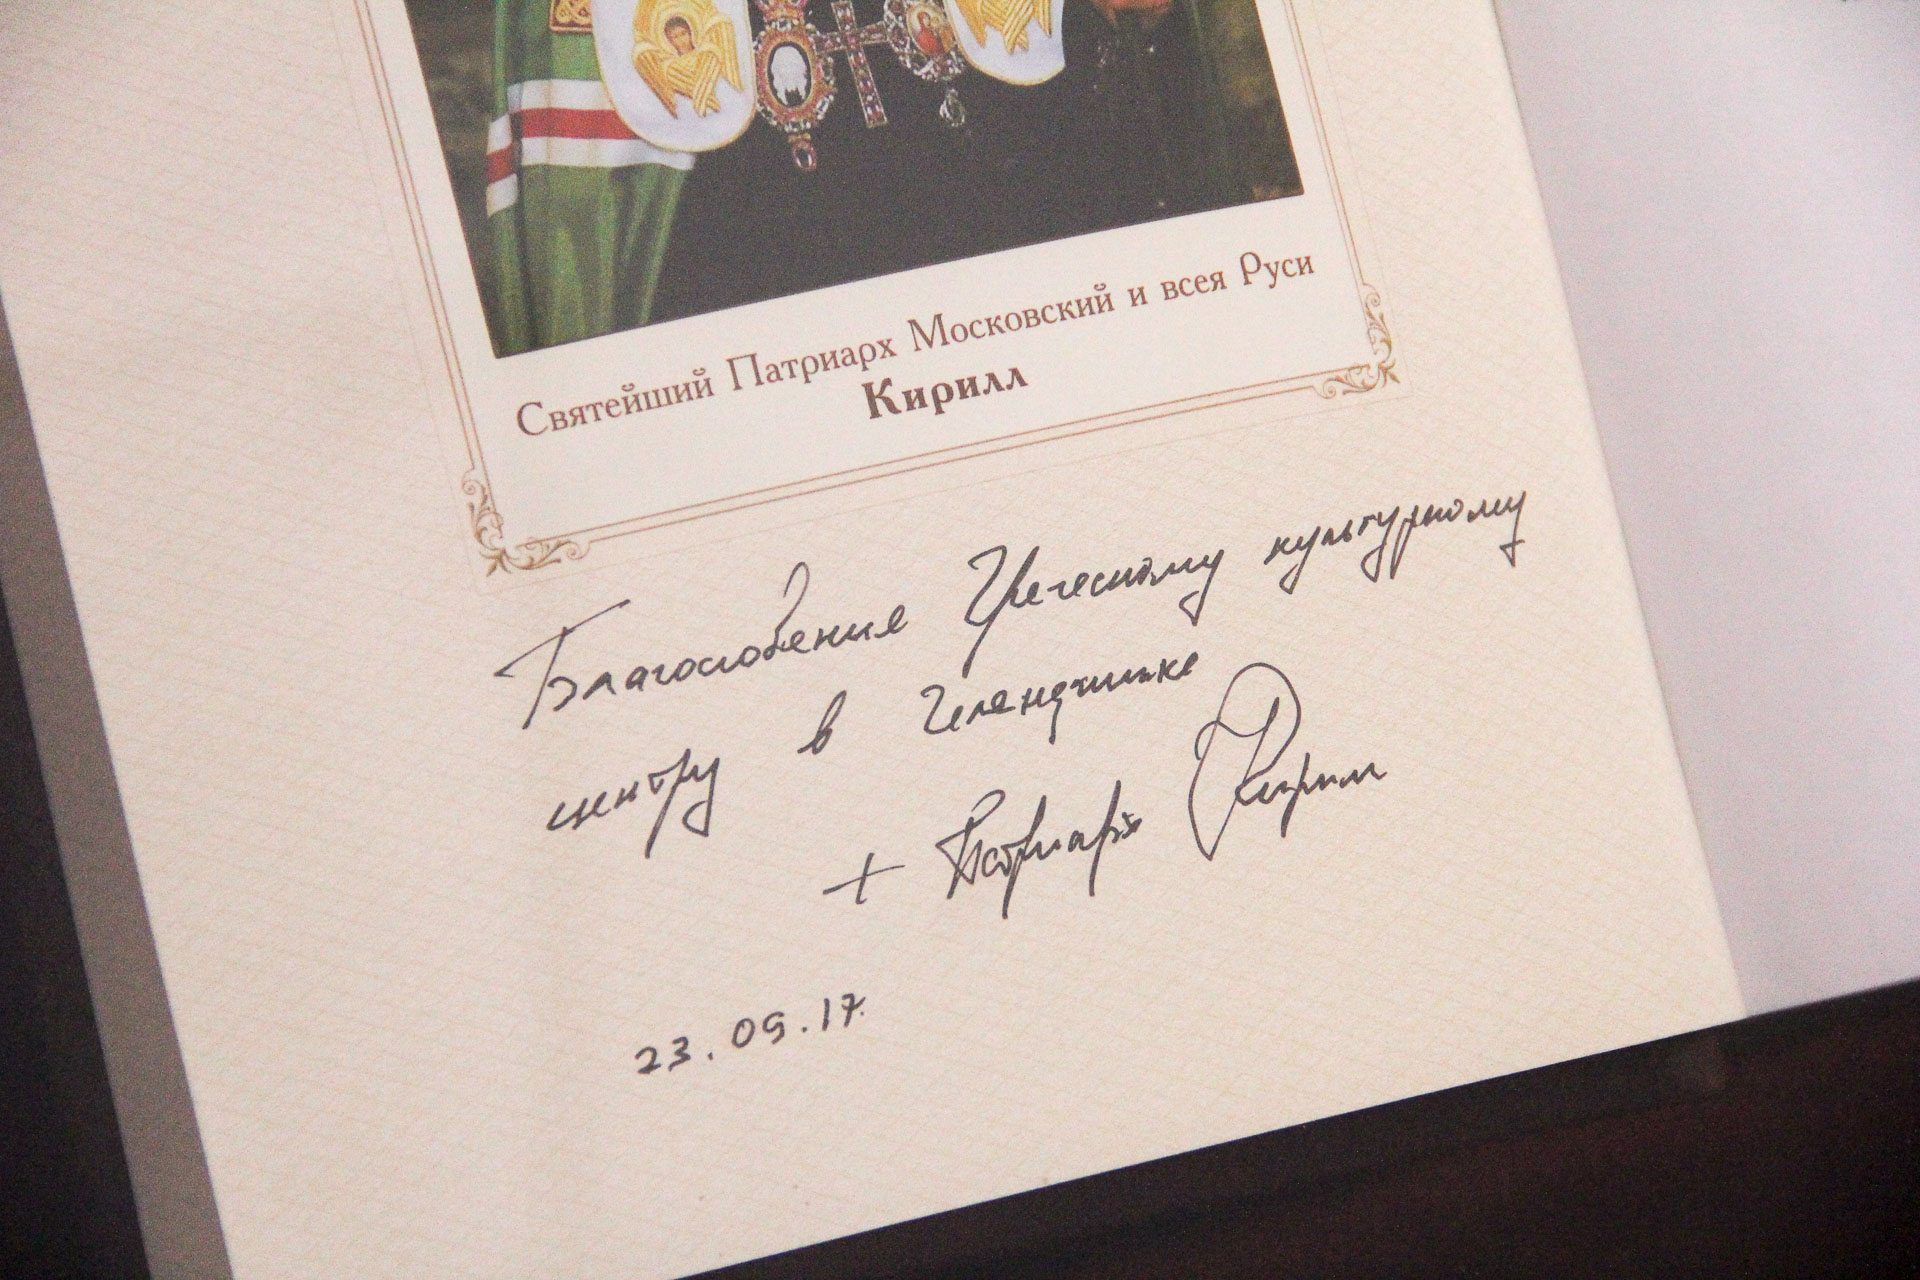 Святейший Патриарх Московский и всея Руси
Кирилл
Благословение Греческому культурному
центру в Геленджике
+ Патриарх Кирилл
23.09.17.